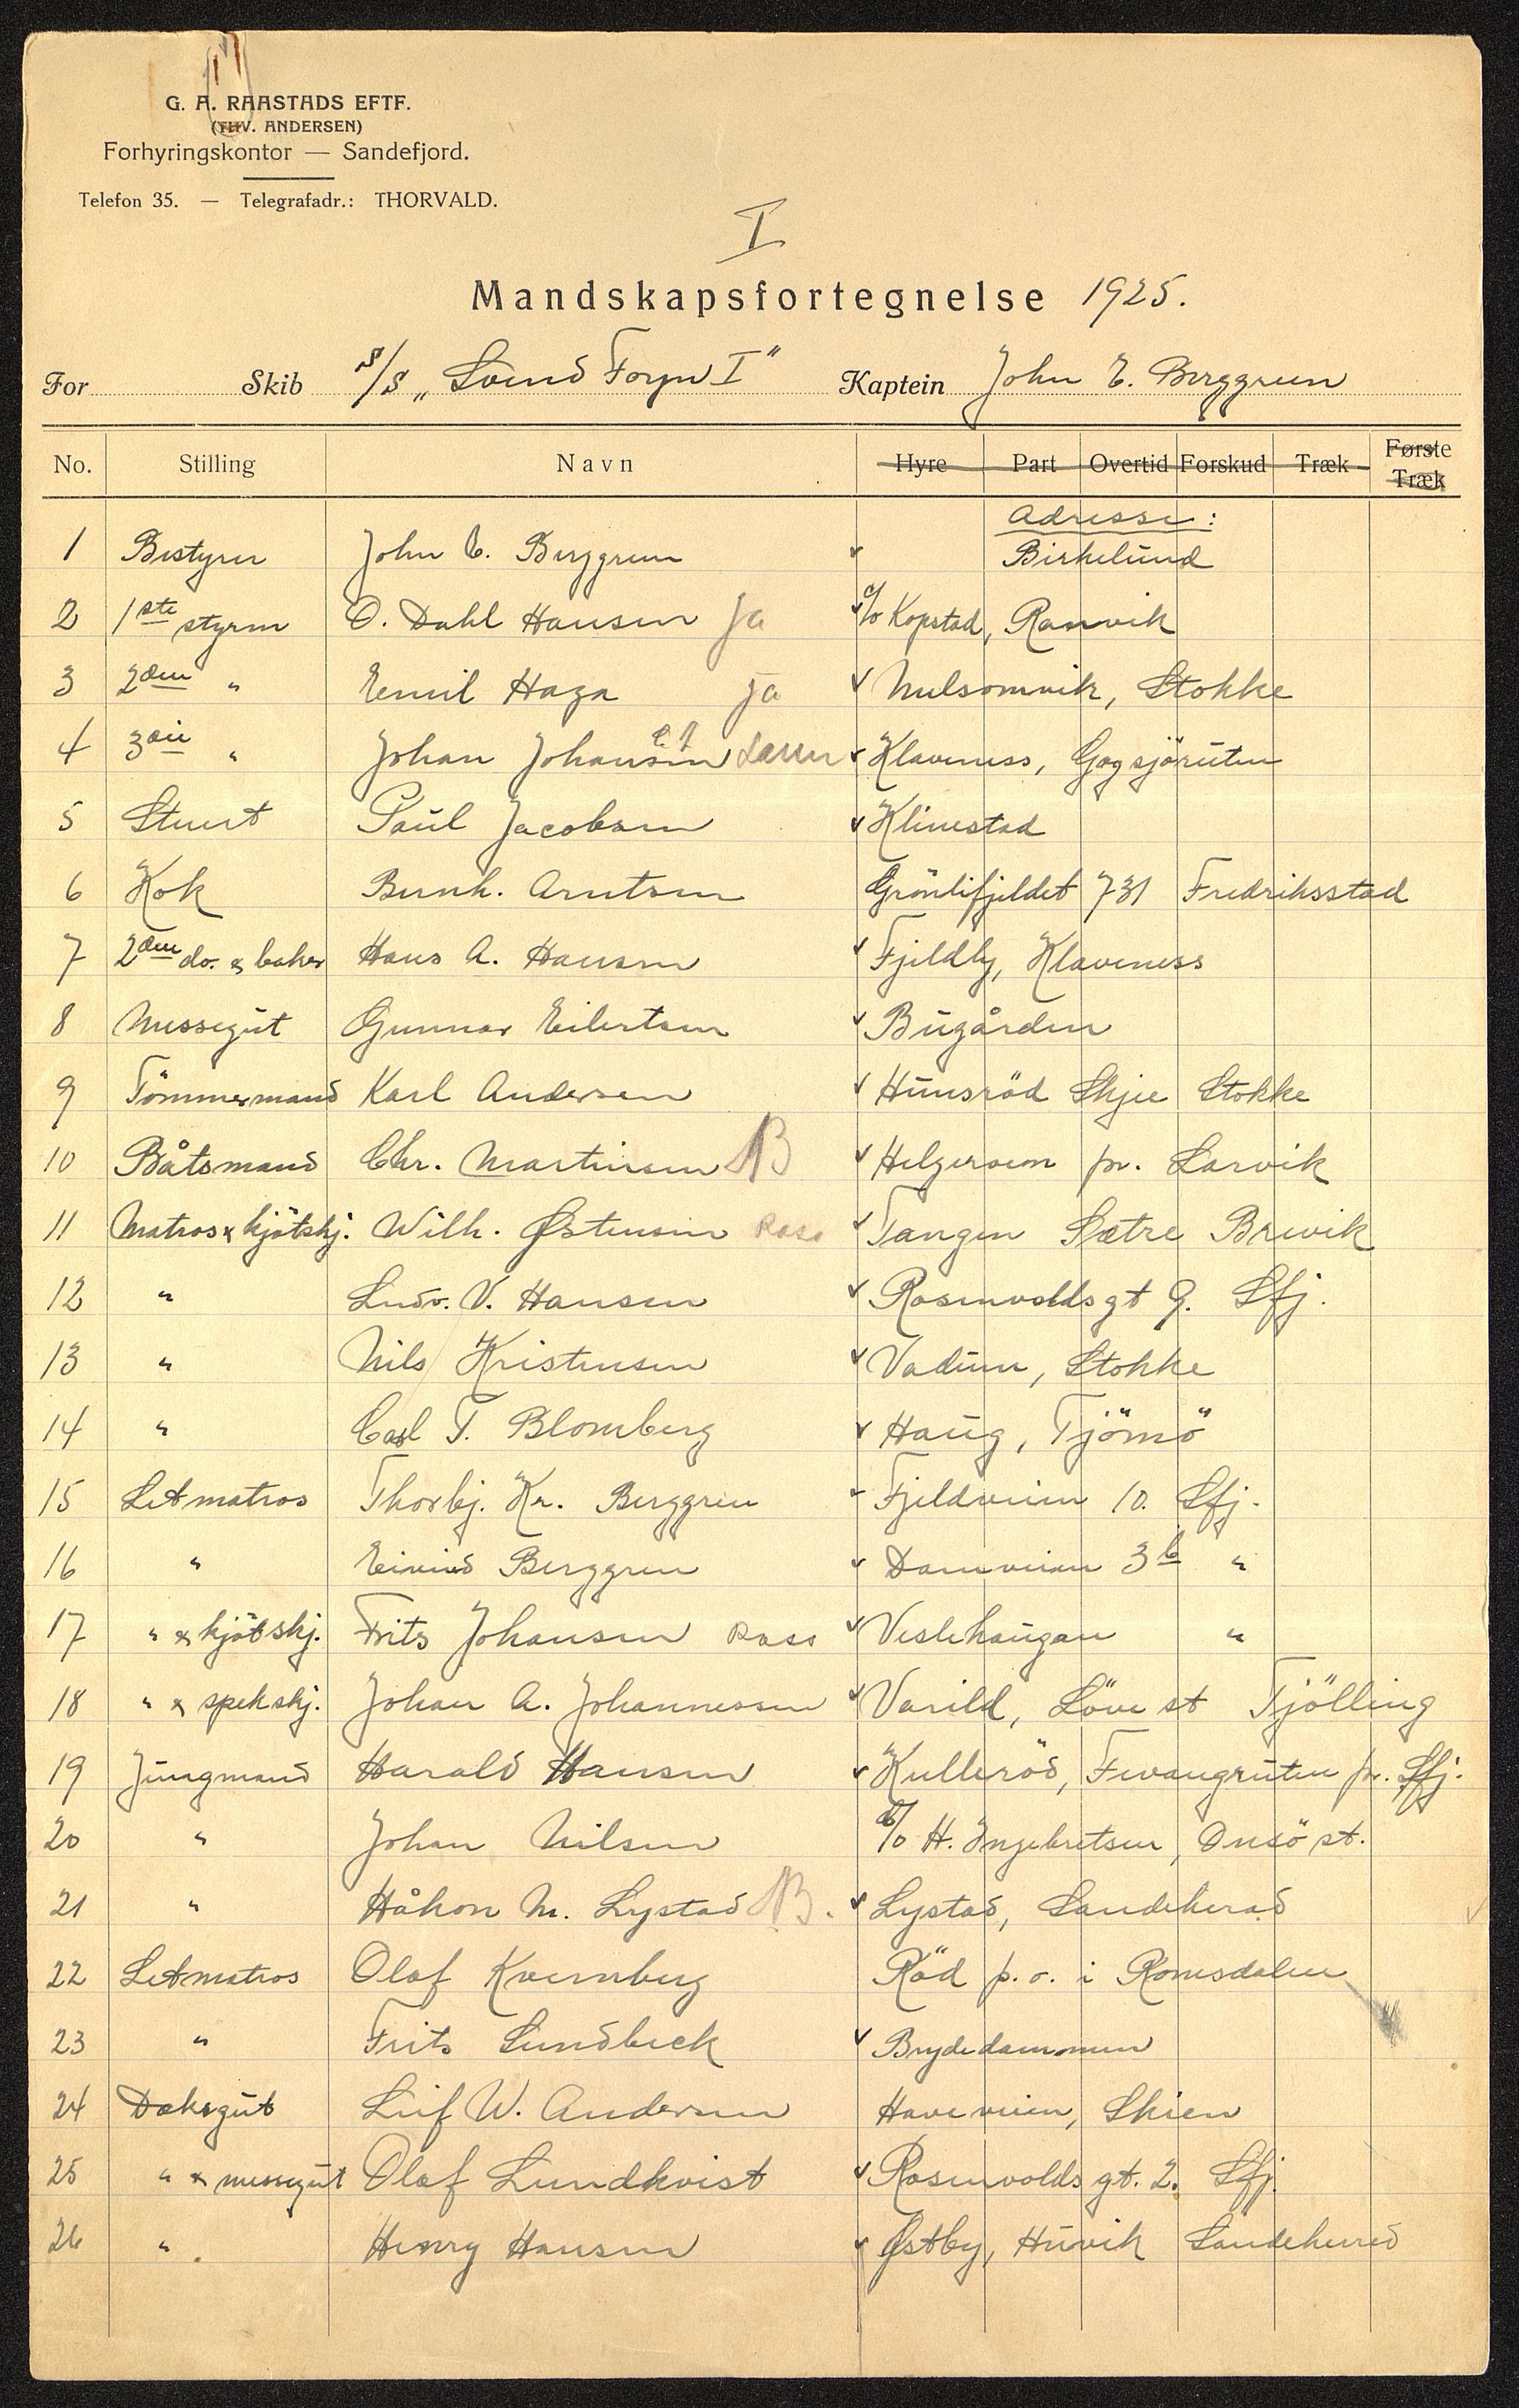 G. A. RAASTADS EFTF.
(THV. ANDERSEN)
Forhyringskontor — Sandefjord.
Telefon 35. — Telegrafadr.: THORVALD.
I
Mandskapsfortegnelse 1925.
For Skib S/S „Svend Foyn I" Kaptein John E. Berggreen
No. Stilling Navn Hyre Part Overtid Forskud Træk Første Træk
Adresse:
1 Bestyrer John E. Berggreen ✓ Birkelund
2 1ste styrm O. Dahl Hansen Ja ✓ c/o Kopstad, Ranvik
3 2den " Emil Haga ja ✓ Melsomvik, Stokke
4 3die " Johan Johansen ✓ Klaveness, Gogsjöruten
5 Stuert Paul Jacobsen ✓ Klinestad
6 Kok Bernh. Arntsen Grönlifjeldet 731 Fredriksstad
7 2den do. & baker Hans A. Hansen ✓ Fjeldly, Klaveness
8 Messegut Gunnar Eilertsen ✓ Bugården
9 Tömmermand Karl Andersen ✓ Hunsröd Skjee Stokke
10 Båtsmand Chr. Martinsen B ✓ Helgeroen pr. Larvik
11 Matros & kjötskj. Wilh. Østensen Ross ✓ Tangen Sætre Brevik
12 " Ludv. V. Hansen ✓ Rosenvolds gt 9. Sfj.
13 " Nils Kristensen ✓ Vadum, Stokke
14 " Carl T. Blomberg ✓ Haug, Tjömö
15 Letmatros Thorbj. Kr. Berggren ✓ Fjeldveien 10. Sfj.
16 " Eivind Berggren ✓ Damveien 3b "
17 " & kjötskj. Frits Johansen Ross ✓ Veslehaugan "
18 " & spekskj. Johan A. Johannessen ✓ Varild, Löve st Tjölling
19 Jungmand Harald Hansen ✓ Kulleröd, Fevangruten pr. Sfj.
20 " Johan Nilsen c/o H. Ingebretsen, Onsö st.
21 " Håkon M. Lystad B. ✓ Lystad, Sandeherad ✓
22 Letmatros Olaf Kvernberg Röd p.o. i Romsdalen
23 " Frits Lundbeck ✓ Brydedammen
24 Dæksgut Leif W. Andersen Haveveien, Skien
25 " & messegut Olaf Lundkvist ✓ Rosenvolds gt. 2. Sfj.
26 " Henry Hansen ✓ Østby, Huvik Sandeherred